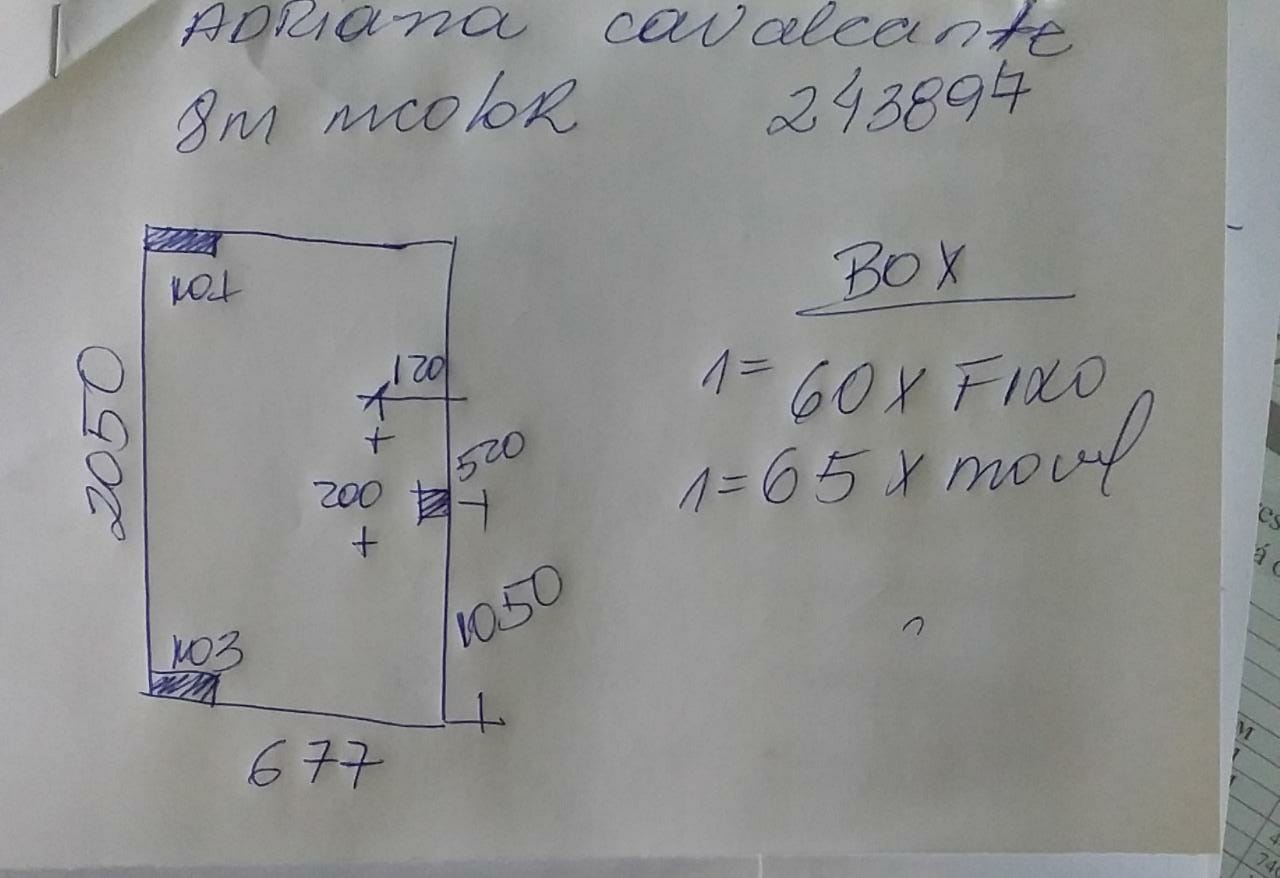 ADRIANA cavalcante
8m incoloR 243897
BOX
1101
2050
120
1= 60 X FIXO
520
1= 65 X movel
200
1050
1103
677